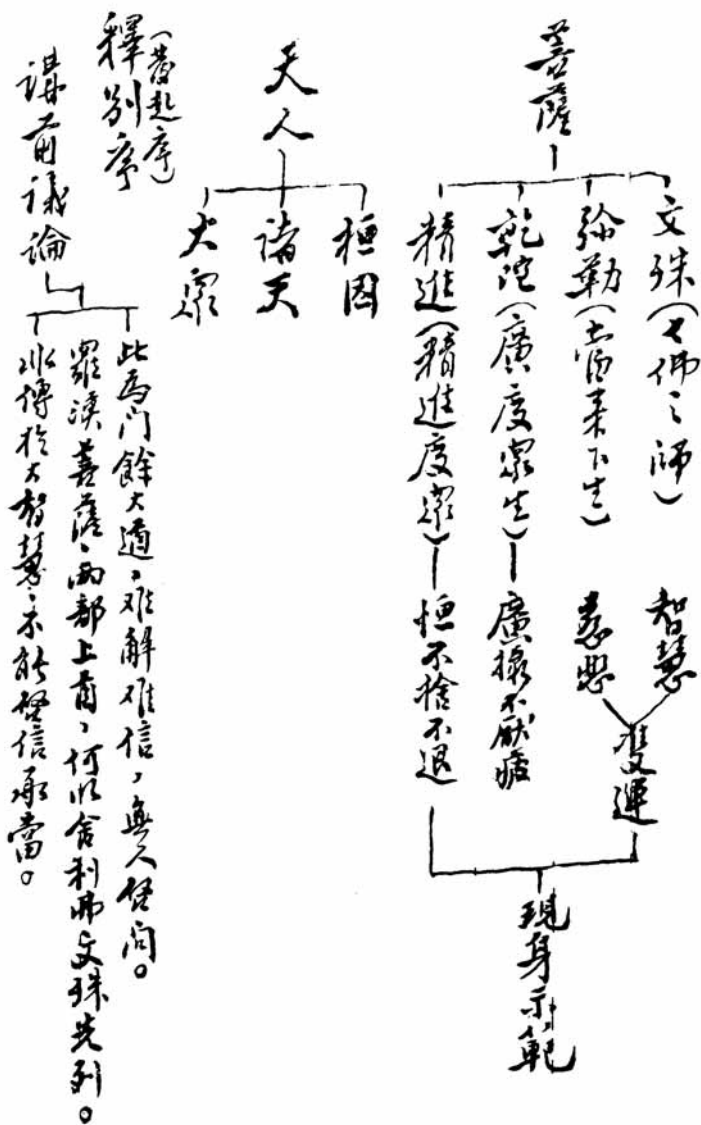 菩薩
文殊(七佛之師)
智慧
弥勒(當來下生)
慈悲
雙運
乾陀(廣度眾生)
廣攝不厭疲
精進(精進度眾)
恒不捨不退
現身示範
天人
桓因
諸天
大眾
(發起序)
釋別序
講前議論
此為門餘大道，难解难信，無人問。
羅漢菩薩，両部上首，何以舍利弗文殊先列。
於大智慧，不能信承當。